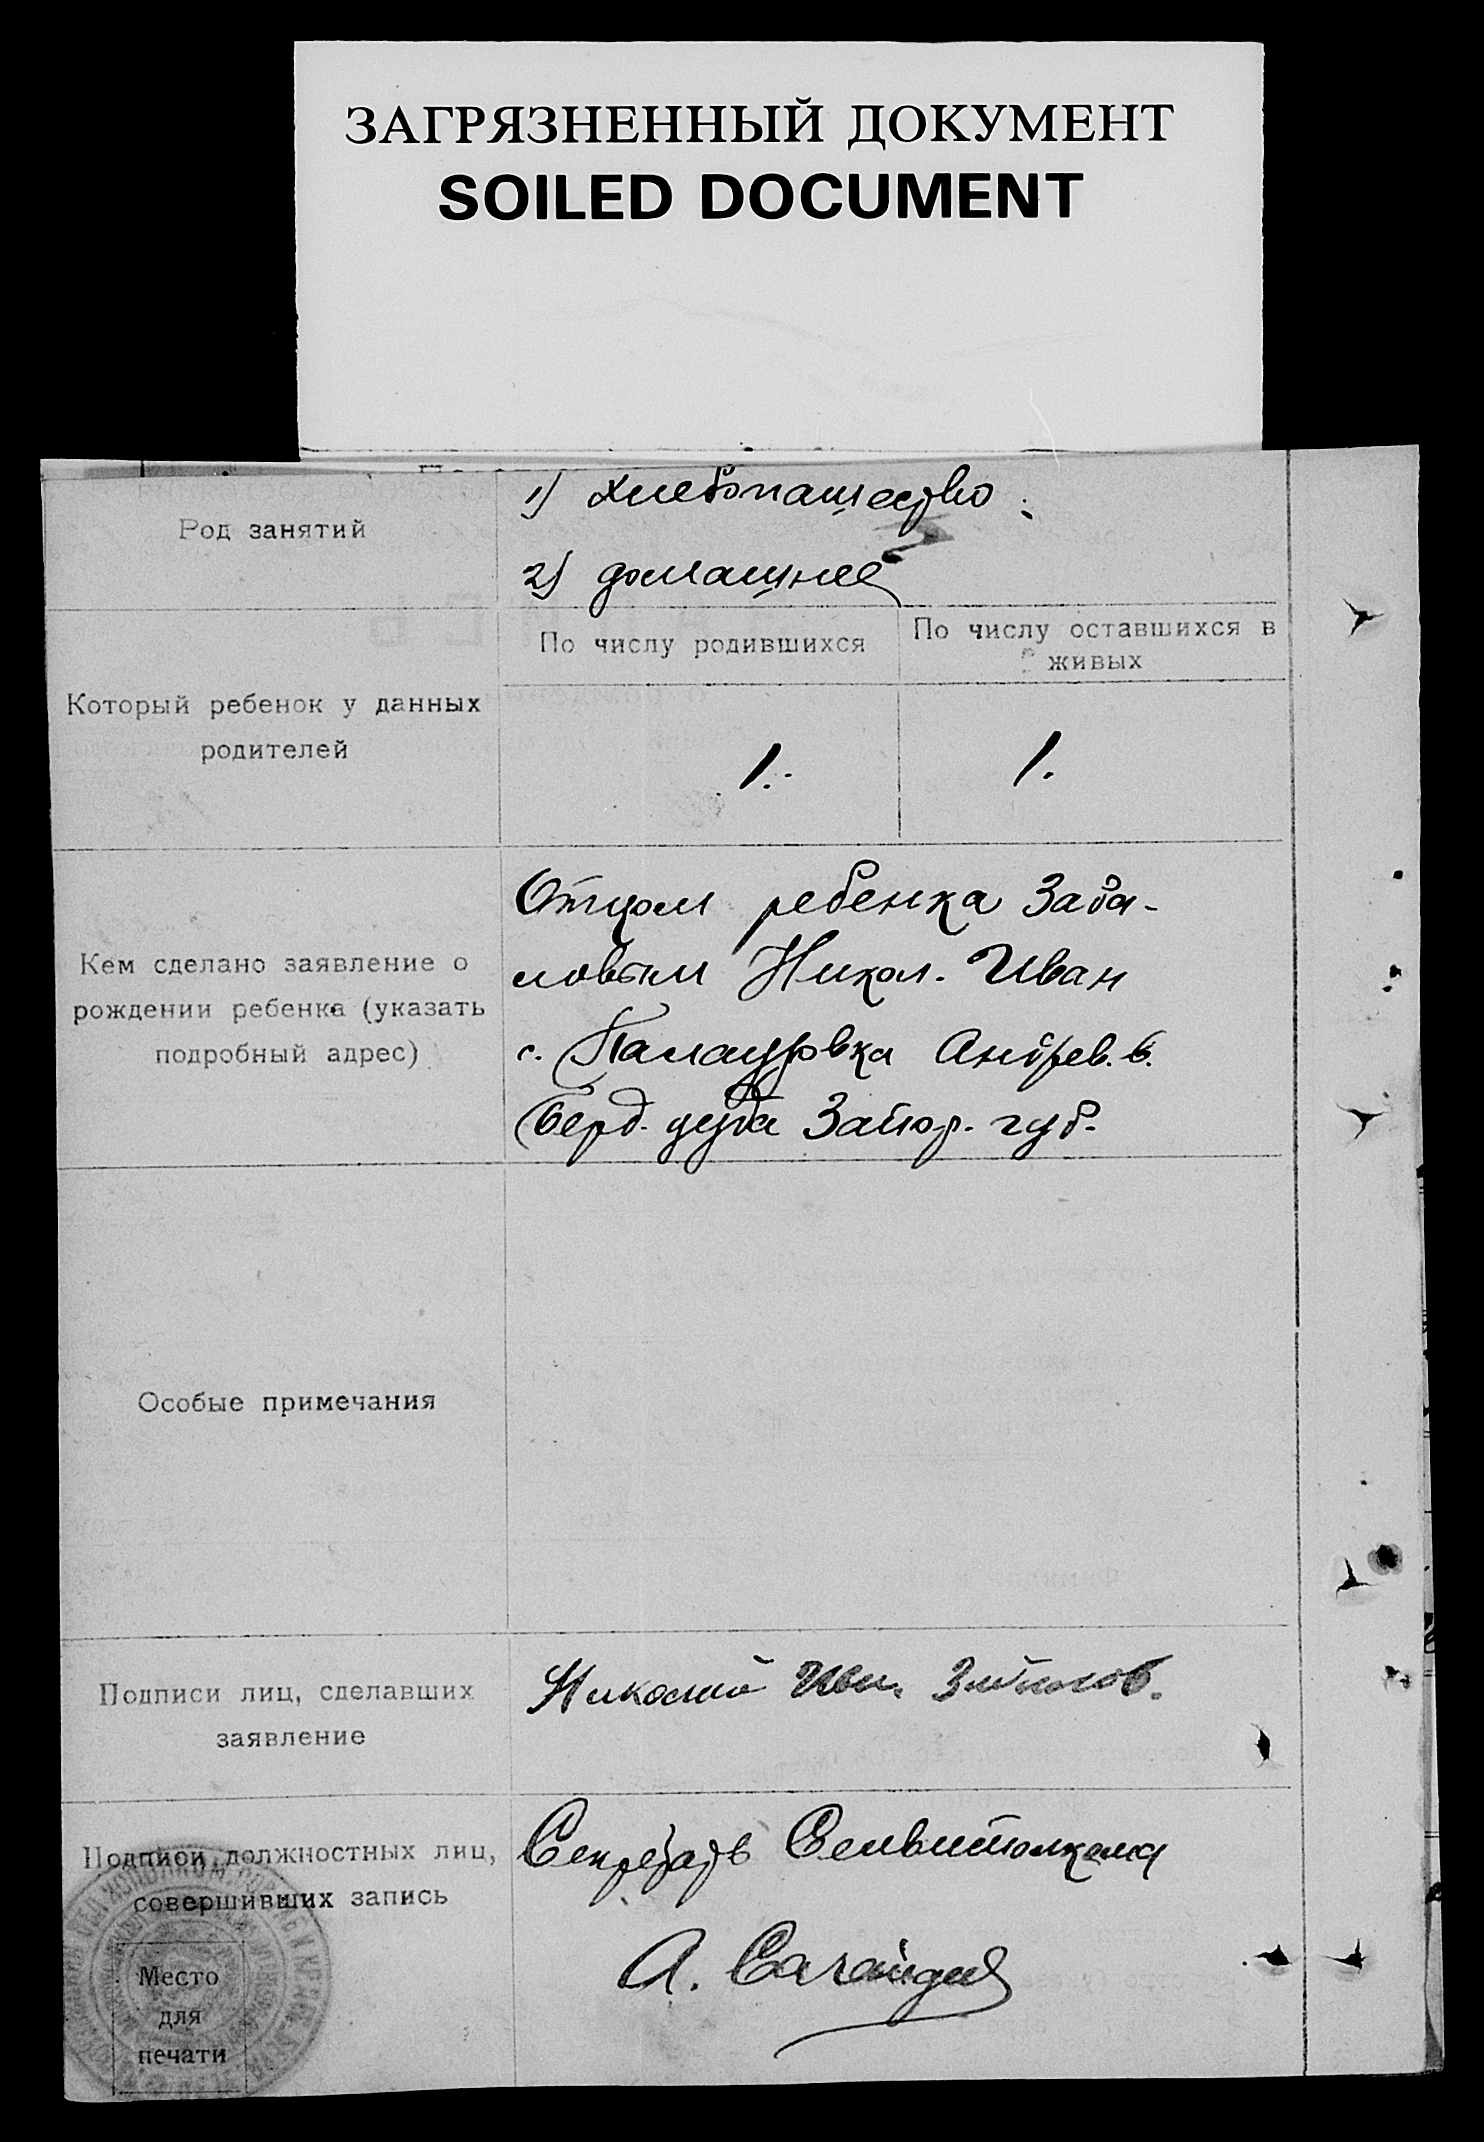 ЗАГРЯЗНЕННЫЙ ДОКУМЕНТ
SOILED DOCUMENT
Род занятий
1) хлебопашество
2) домашнее
Который ребенок у данных
родителей
По числу родившихся
По числу оставшихся в
живых
1.
1.
Кем сделано заявление о
рождении ребенка (указать
подробный адрес)
Отцом ребенка
Никол. Иван
с. Палауровка Андрев. в.
Берд. уезда Запор. губ.
Особые примечания
Подписи лиц, сделавших
заявление
Николай Ив.
Подписи должностных лиц,
совершивших запись
Секретарь
А.
Место
для
печати